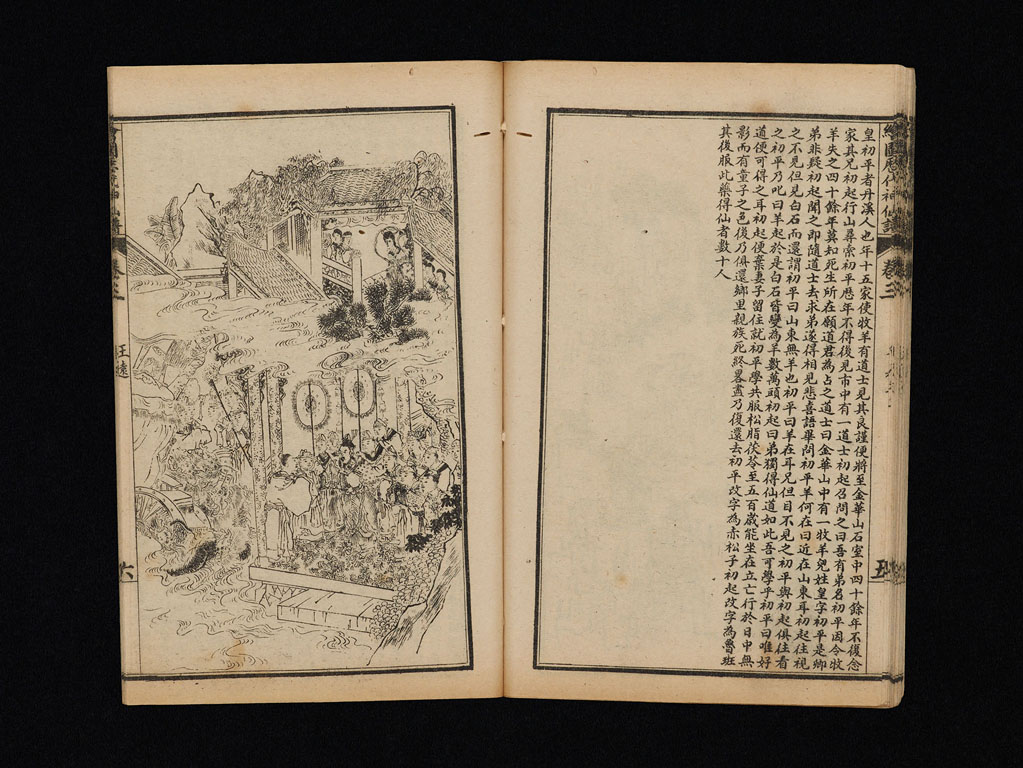 繪圖歷代神仙譜 卷三
五
皇初平者丹溪人也年十五家使牧羊有道士見其良謹便將至金華山石室中四十餘年不復念
家其兄初起行山尋索初平歷年不得後見市中有一道士初起召問之曰吾有弟名初平因令牧
羊失之四十餘年莫知死生所在願道君為占之道士曰金華山中有一牧羊兒姓皇字初平是卿
弟非疑初起聞之即隨道士去求弟遂得相見悲喜語畢問初平羊何在曰近在山東耳初起往視
之不見但見白石而還謂初平曰山東無羊也初平曰羊在耳兄但目不見之初平與初起俱往看
之初平乃叱曰羊起於是白石皆變為羊數萬頭初起曰弟獨得仙道如此吾可學乎初平曰唯好
道便可得之耳初起便棄妻子留住就初平學共服松脂茯苓至五百歲能坐在立亡行於日中無
影而有童子之色後乃俱還鄉里親族死終畧盡乃復還去初平改字為赤松子初起改字為魯班
其後服此藥得仙者數十人
卷三
王遠
六